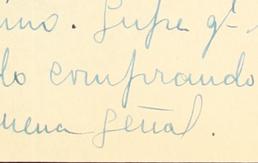 imo. Supe q'
do comprando
uena señal.